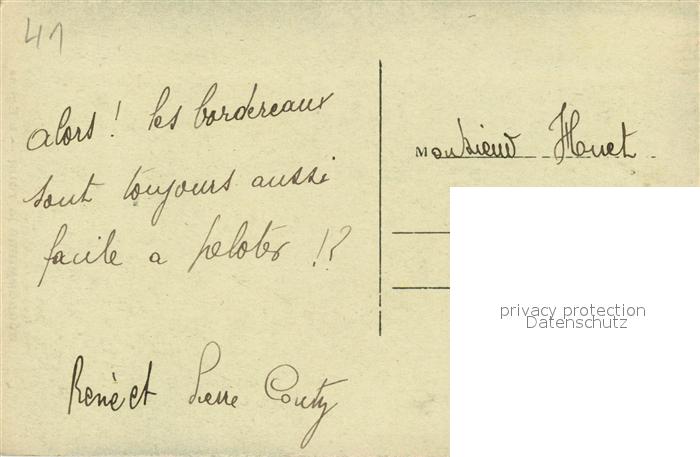 41
Alors ! les bordereaux
sont toujours aussi
facile a peloter !?
René et Pierre Couty
Monsieur Huet
privacy protection
Datenschutz